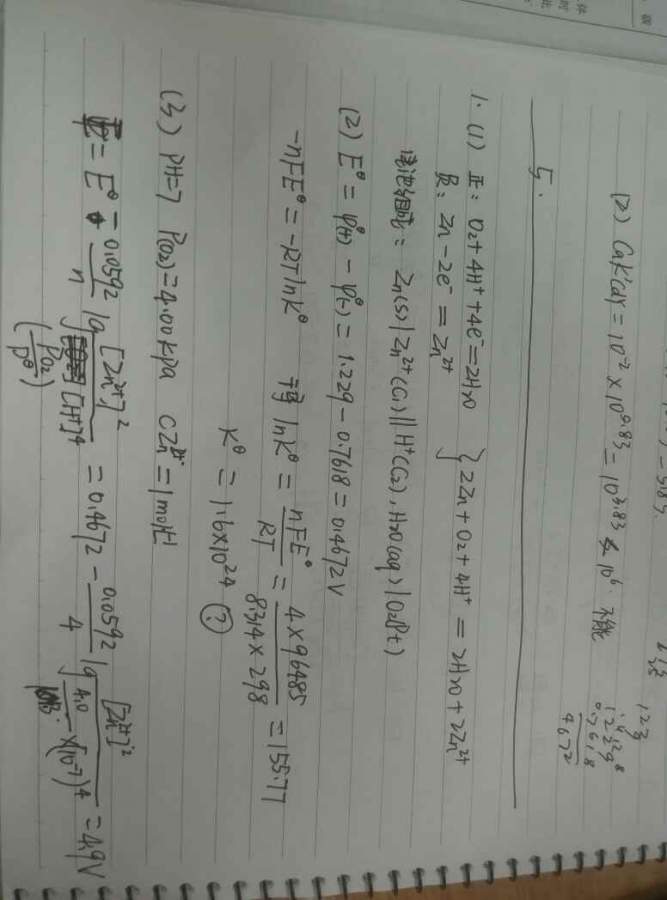 (2) CaK'caY = 10⁻² × 10⁵·⁸³ = 10³·⁸³ < 10⁶. 不能
1.229
0.7618
4672
5.
1. (1) 正: O₂ + 4H⁺ + 4e⁻ = 2H₂O
负: Zn - 2e⁻ = Zn²⁺
{ 2Zn + O₂ + 4H⁺ = 2H₂O + 2Zn²⁺
电池组成: Zn(s) | Zn²⁺(C₁) || H⁺(C₂), H₂O(aq) | O₂(Pt)
(2) E^θ = φ^θ(+) - φ^θ(-) = 1.229 - 0.7618 = 0.4672V
-nFE^θ = -RTlnK^θ 得 lnK^θ = nFE^θ / RT = 4×96485 / 8.314×298 = 155.77
K^θ = 1.6×10²⁴ (?)
(3) PH=7 P(O₂) = 4.00kpa CZn²⁺ = 1mol·L⁻¹
= E^θ - 0.0592/n lg [Zn²⁺]² / (PO₂/P^θ) [H⁺]⁴ = 0.4672 - 0.0592/4 lg [Zn²⁺]² / 4.0 × (10⁻⁷)⁴ = 4.9V